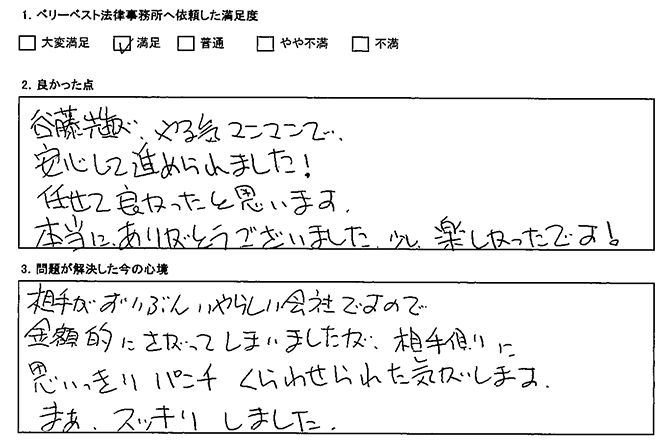 1. ベリーベスト法律事務所へ依頼した満足度
大変満足 満足 普通 やや不満 不満
2. 良かった点
谷藤先生が、やる気マンマンで、
安心して進められました！
任せて良かったと思います。
本当に、ありがとうございました。少し、楽しかったです！
3. 問題が解決した今の心境
相手がずいぶんいやらしい会社ですので
金額的にさがってしまいましたが、相手側に
思いっきりパンチくらわせられた気がします。
まぁ、スッキリしました。